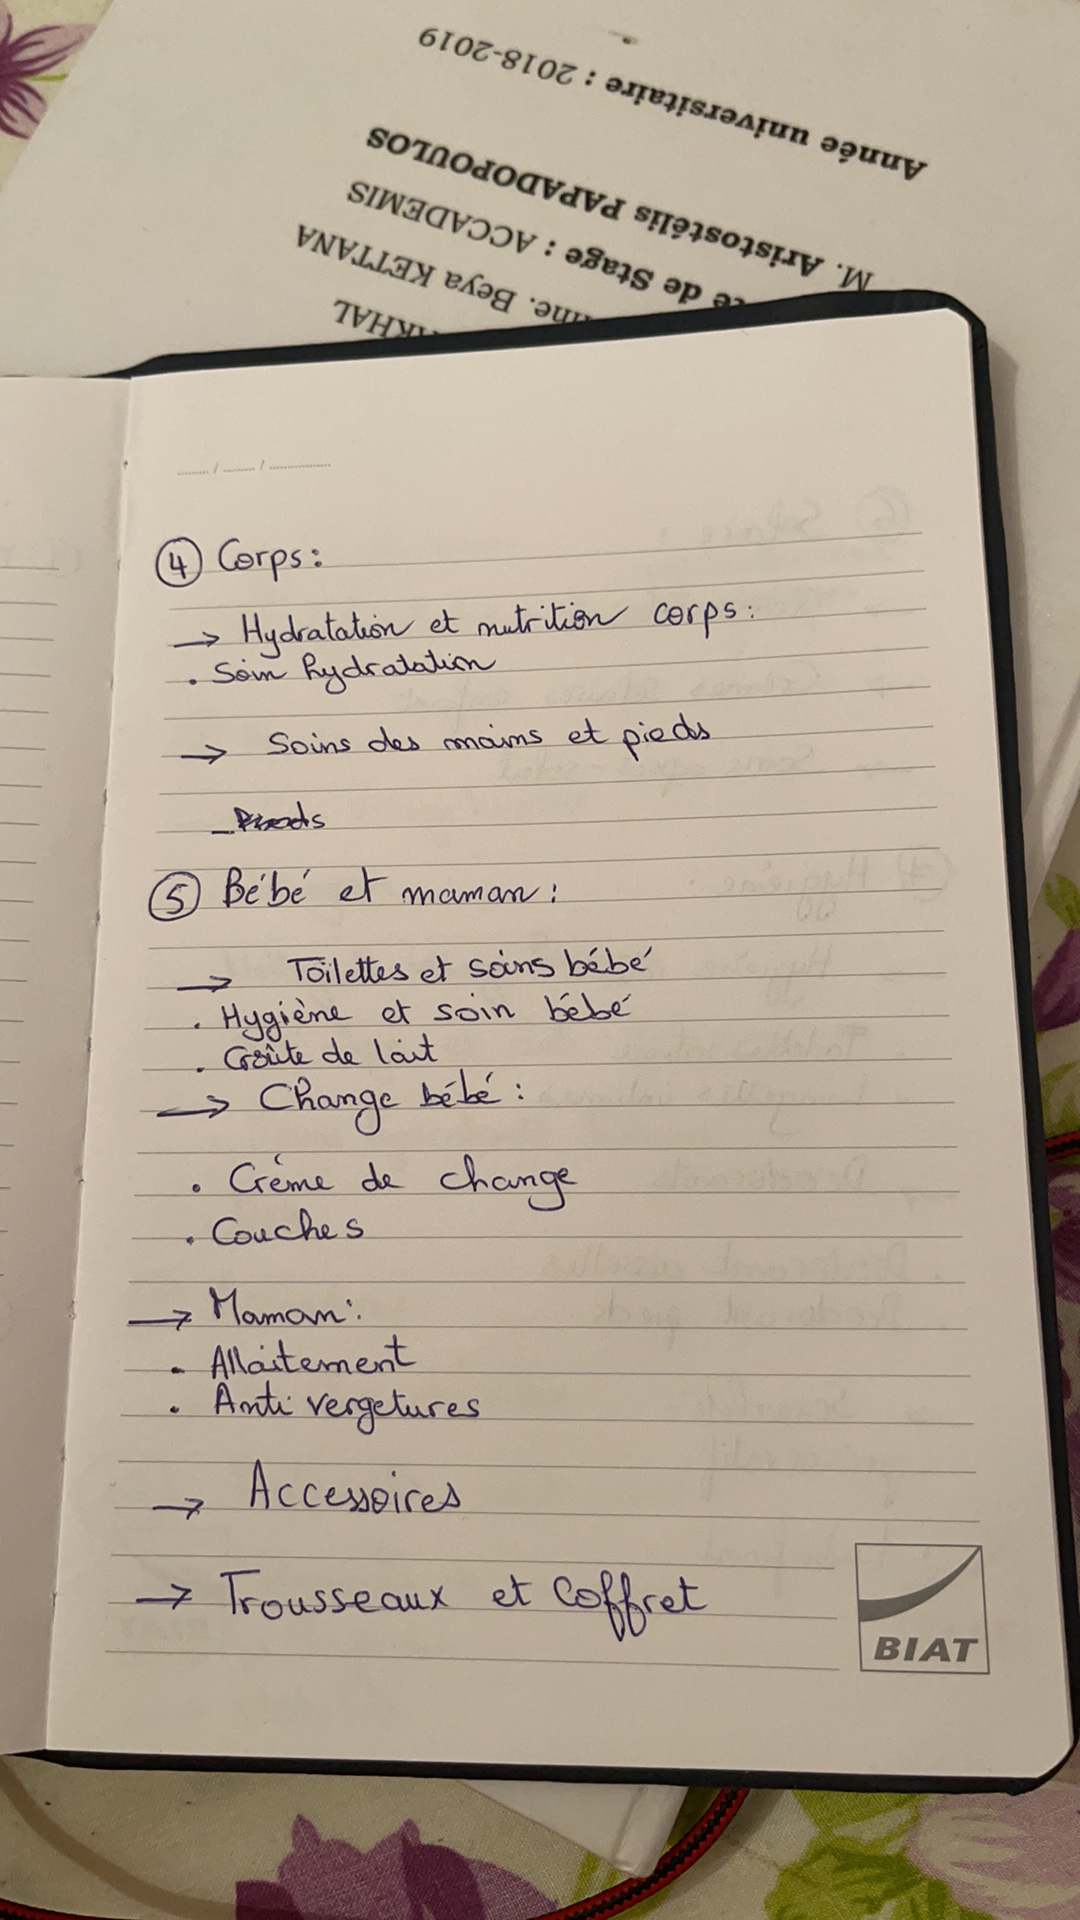 Année universitaire : 2018-2019
M. Aristostélis PAPADOPOULOS
de Stage : ACCADEMIS
Beya KETTANA
④ Corps:
→ Hydratation et nutrition corps:
. Soin hydratation
→ Soins des mains et pieds
⑤ Bébé et maman:
→ Toilettes et soins bébé
. Hygiène et soin bébé
. Croûte de lait
→ Change bébé:
. Crème de change
. Couches
→ Maman:
. Allaitement
. Anti vergetures
→ Accessoires
→ Trousseaux et Coffret
BIAT